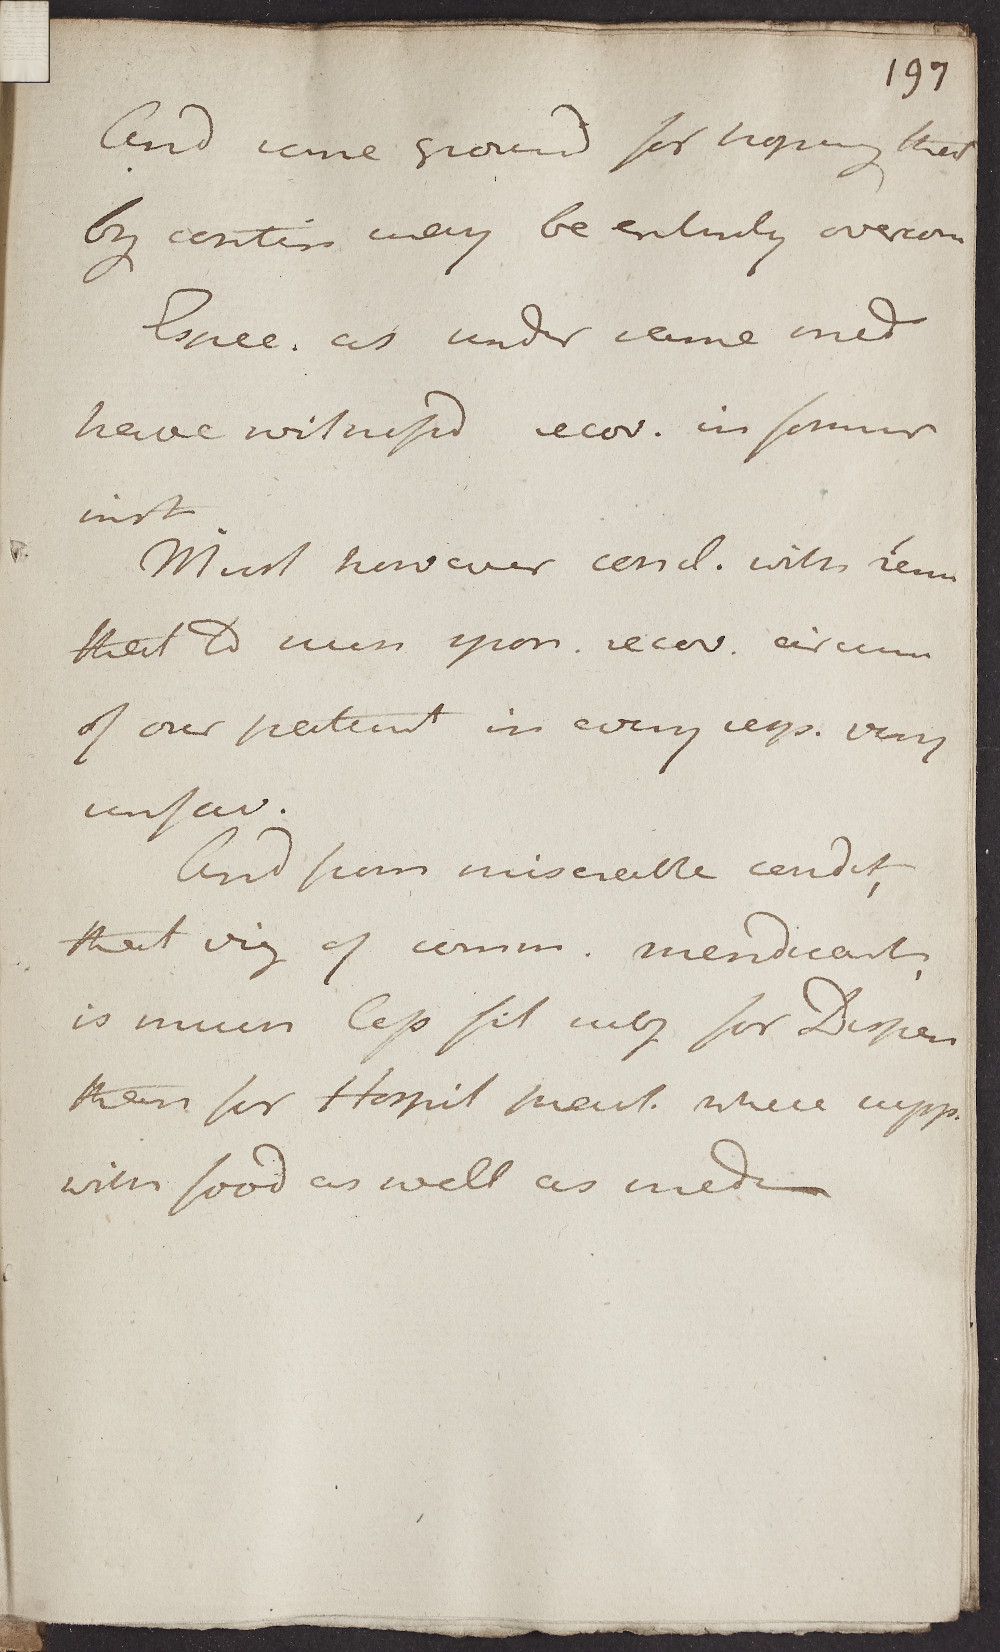 197
And some ground for hoping that
by contin may be entirely overcom
Espec. as under same med
have witnessd recov. in former
inst
Must however concl. with rem
that to mere spon. recov. circum
of our patient in every resp. very
unfav.
And from miserable condit,
that of comm. mendicants,
is much less fit subj for Dispen
than for Hospit treat. where supp.
with food as well as med